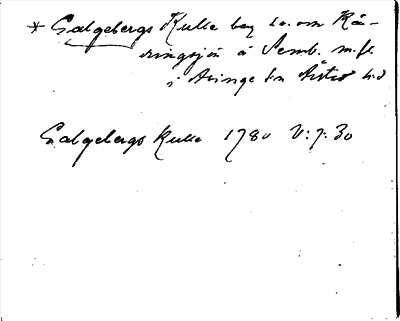 * Galgebergs Kulle beg s.o. om Kä-
ringsjön å Semb. m. fl.
i Asinge sn Åstad hd
Galgebergs Kulle 1780 V: 7: 30